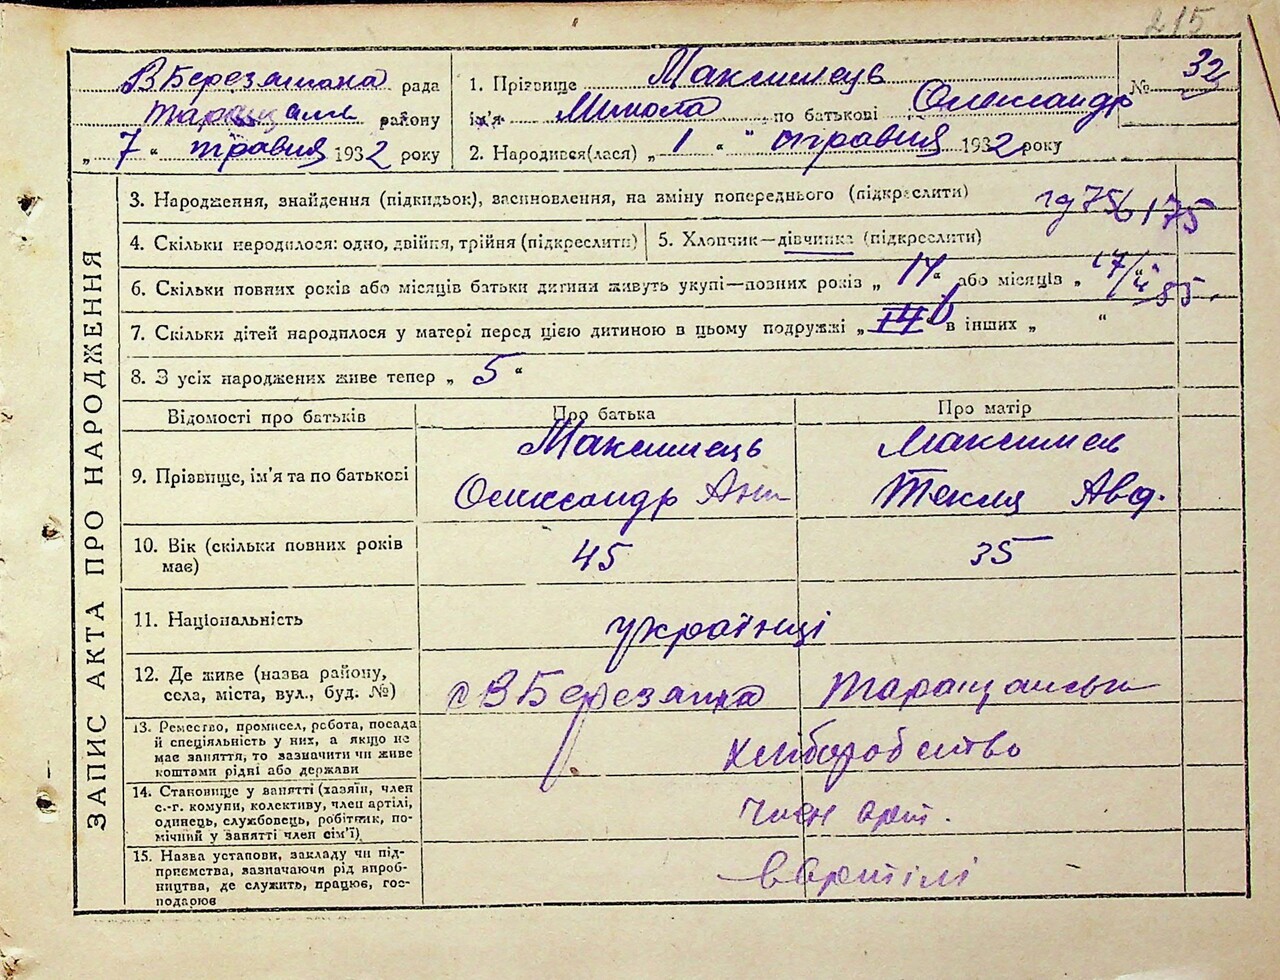 215
ВБерезянська рада
Таращан. району
„ 7 " травня 1932 року
1. Прізвище Максимець
ім'я Микола по батькові Олександр
2. Народився(лася) „ 1 " травня 1932 року
№ 32
ЗАПИС АКТА ПРО НАРОДЖЕННЯ
3. Народження, знайдення (підкидьок), васиновлення, на зміну попереднього (підкреслити)
4. Скільки народилося: одно, двійня, трійня (підкреслити) 5. Хлопчик—дівчинка (підкреслити)
6. Скільки повних років або місяців батьки дитини живуть укупі—повних років „ 14 " або місяців „
7. Скільки дітей народилося у матері перед цією дитиною в цьому подружжі „ 6 " в інших „ "
8. З усіх народжених живе тепер „ 5 "
Відомості про батьків Про батька Про матір
9. Прізвище, ім'я та по батькові
Максимець Максимець
Олександр Ант Текля Авд.
10. Вік (скільки повних років має) 45 35
11. Національність українці
12. Де живе (назва району,
села, міста, вул., буд. №) с ВБерезянка Таращанськ
13. Ремество, промисел, робота, посада
й спеціяльність у них, а якщо не
має заняття, то зазначити чи живе
коштами рідні або держави
хліборобство
14. Становище у занятті (хазяїн, член
с.-г. комуни, колективу, член артілі,
одинець, службовець, робітник, по-
мічний у занятті член сім'ї)
Член арт.
15. Назва установи, закладу чи під-
приємства, зазначаючи рід вироб-
ництва, де служить, працює, гос-
подарює
в Артілі